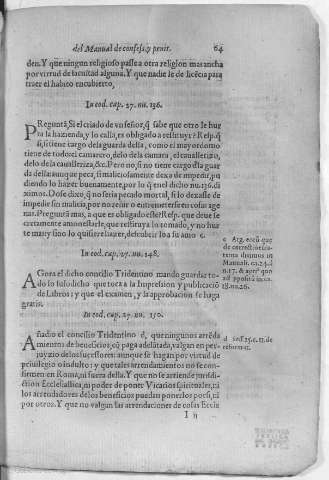 del Manual de confess. y penit. 64
den. Y que ningun religioso passe a otra religion mas ancha
por virtud de facultad alguna. Y que nadie le de licẽcia para
traer el habito encubierto,
In eod. cap. 27. nu. 136.
PRegunta, Si el criado de vn señor, q̃ sabe que otro le hur
ta la hazienda, y lo calla, es obligado a restituyr? Resp. q̃
si, si tiene cargo dela guarda della, como el mayordomo
tiene de todo: el camarero, delo dela camara, el cauallerizo,
delo dela caualleriza, &c. Pero no, si no tiene cargo dla guar
da della: aunque peca, si maliciosamente dexa de impedir, pu
diendo lo hazer buenamente, por lo q̃ enel dicho nu. 136. di
ximos. Dize dixo, q̃ no seria pecado mortal, si lo dexasse de
impedir sin malicia, por no reñir o entremeterse en cosas age
nas. Pregunta mas, a que es obligado este? Resp. que deue se
cretamente amonestarle, que restituya lo tomado, y no hur
te mas: y sino lo quisere hazer, descubrir lo a su amo c.
c Arg. eorũ que
de correctione fra-
terna diximus in
Manuali. ca. 24.
n. 17. &
18. nu. 26.
In eod. cap. 27. nu. 148.
AGora el dicho concilio Tridentino mando guardar to
do lo susodicho que toca a la impression y publicaciõ
de Libros: y que el examen, y la approbacion se haga
gratis.
In eod. cap. 27. nu. 150.
AÑadio el concilio Tridentino d, que ningunos arrẽda
mientos de beneficios, cõ paga adelãtada, valgan en per
juyzio de los sucessores: aunque se hagan por virtud de
priuilegio o indulto: y que tales arrendamientos no se con-
firmen en Roma, ni fuera della. Y que no se arriende juridi-
ction Ecclesiastica, ni poder de poner Vicarios spirituales, ni
los arrendadores de los beneficios puedan ponerlos por si, ni
por otros. Y que no valgan las arrendaciones de cosas Eccle
d sess. 25. c. 11. de
reform.
I ij